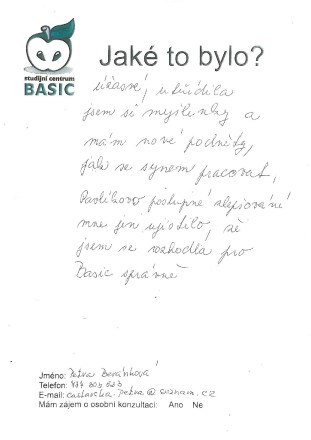 Jaké to bylo?
studijní centrum
BASIC
úžasné, utřídila
jsem si myšlenky a
mám nové podněty,
jak se synem pracovat,
Pavlíkovo postupné zlepšování
mne jen ujistilo, že
jsem se rozhodla pro
Basic správně
Jméno: Petra
Telefon:
E-mail: petra@seznam.cz
Mám zájem o osobní konzultaci: Ano Ne